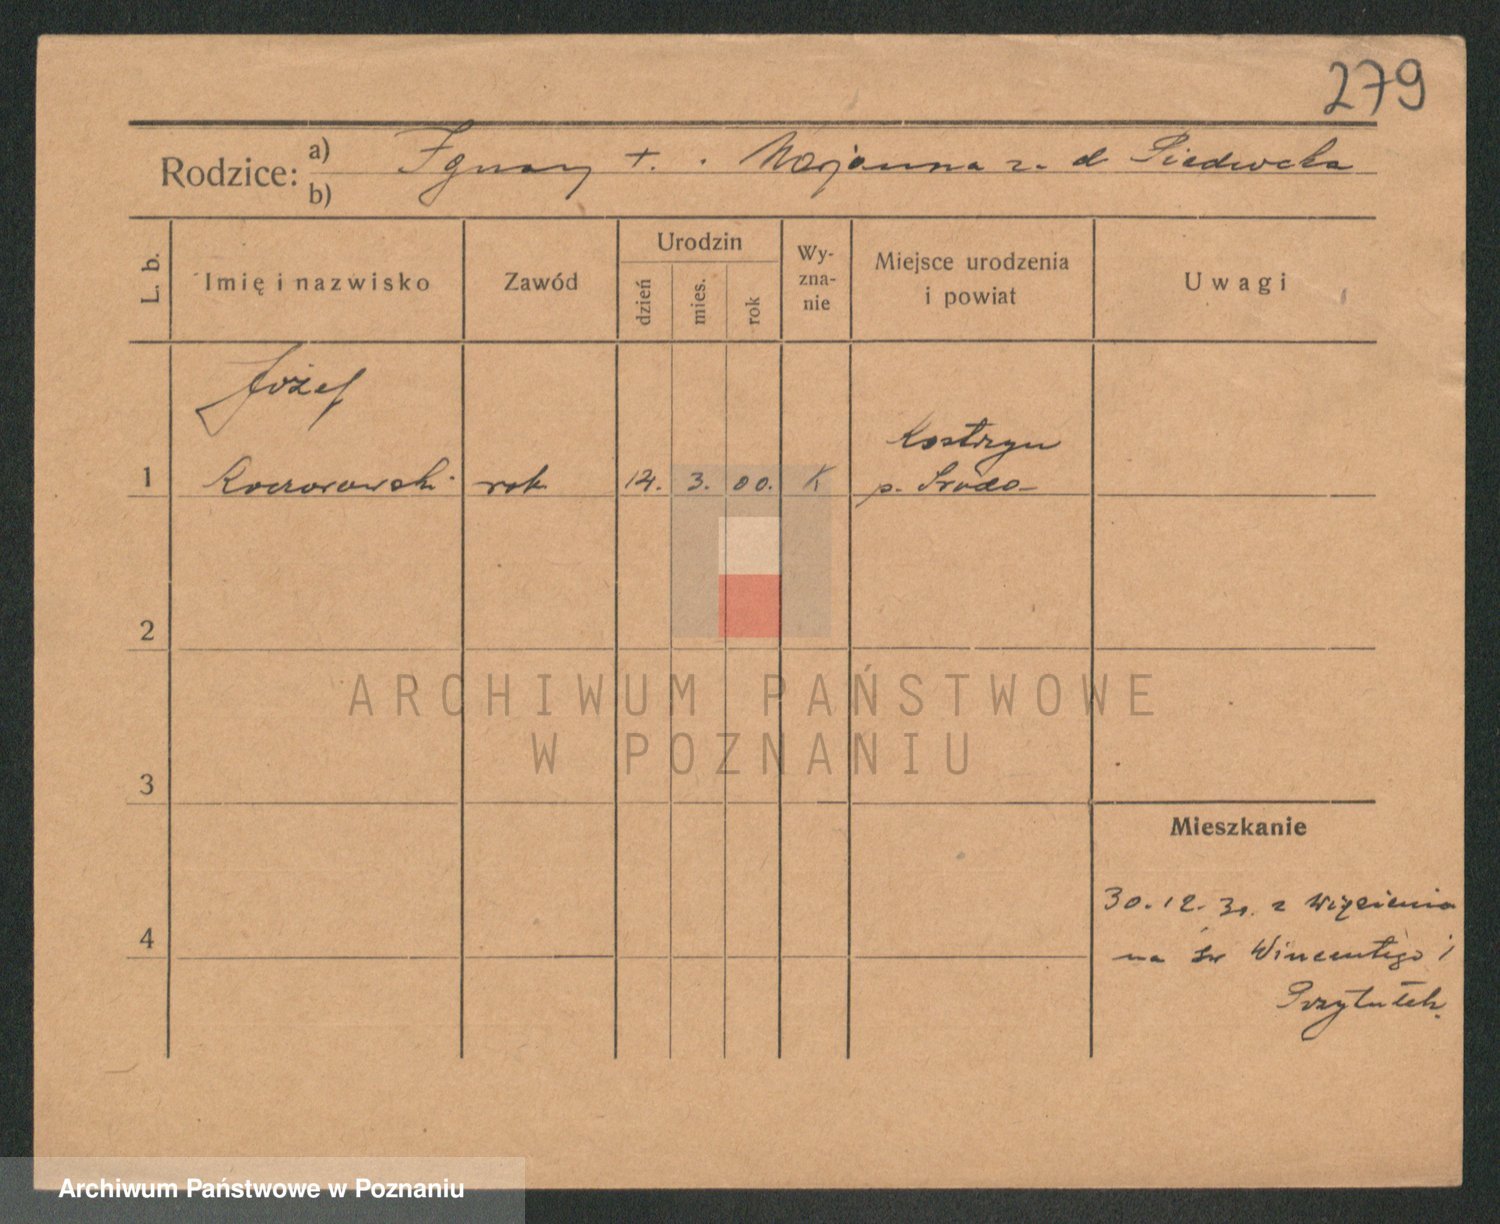 279
Rodzice: a) Ignacy +. Marjanna z. d
b)
L. b.
Imię i nazwisko
Zawód
Urodzin
dzień
mies.
rok
Wy-
zna-
nie
Miejsce urodzenia
i powiat
Uwagi
Józef
Kostrzyn
1 rob. 12. 3. 00. K p. Środa
2
ARCHIWUM PAŃSTWOWE
W POZNANIU
3
Mieszkanie
30.12.31. z więzienia
4
na św Wincentego 1
Przytułek.
Archiwum Państwowe w Poznaniu